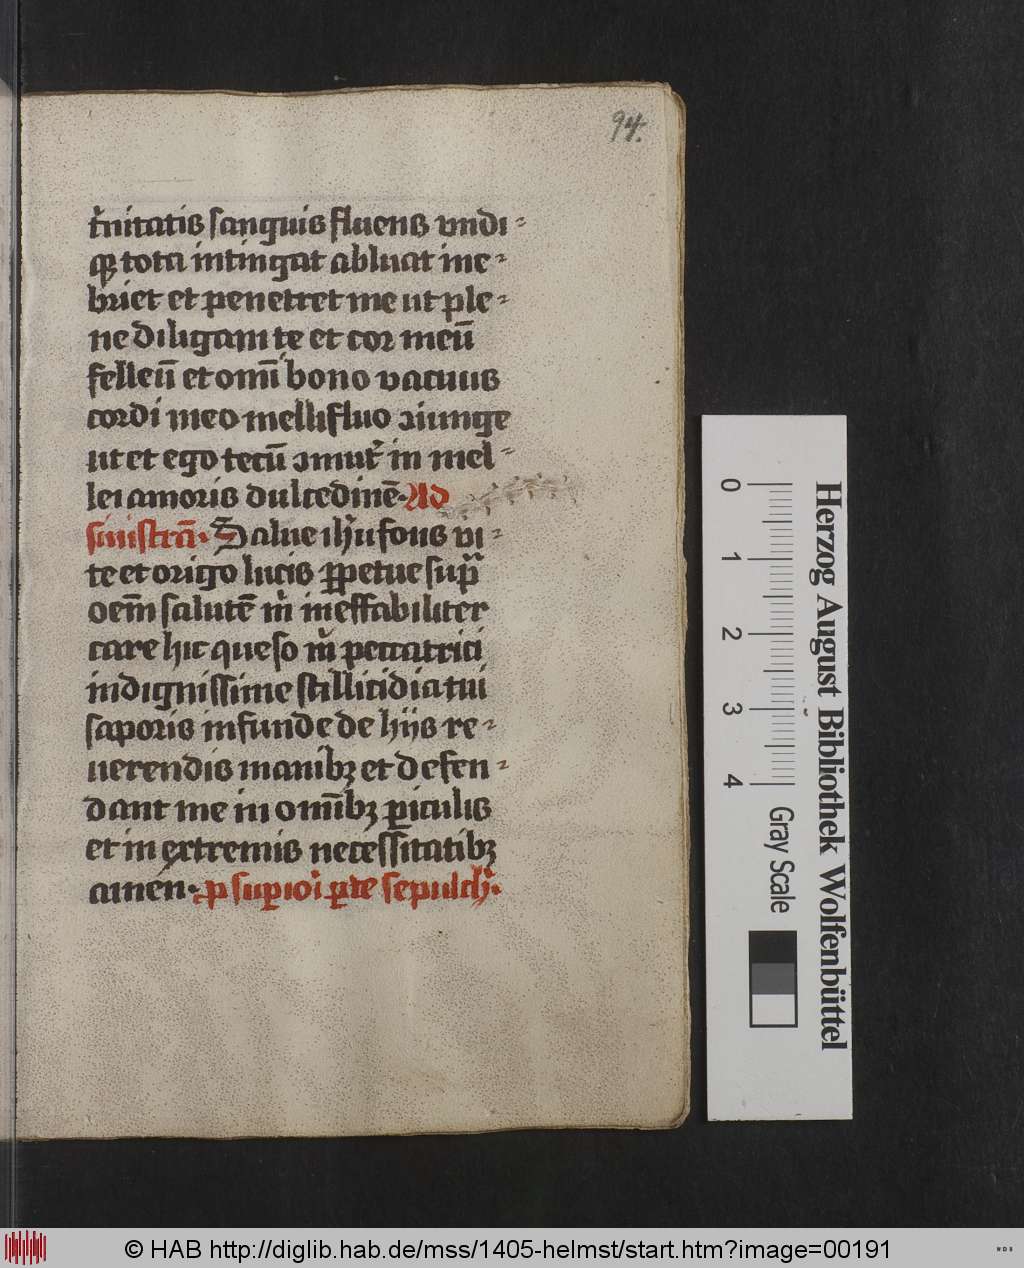 94.
t͛nitatis sanguis fluens vndi-
qꝫ tota intingat abluat ine-
briet et penetret me ut ple-
ne diligam te et cor meū
felleū et omī bono vacuus
cordi meo mellifluo ꝯiunge
ut et ego tecū ꝯmut͛ in mel-
lei amoris dulcedinē. Ad
sinistrā. Salue ihū fons vi-
te et origo lucis ꝑpetue sup͛
oēm salutē m̄ ineffabiliter
care hic queso m̄ peccatrici
indignissime stillicidia tui
saporis infunde de hijs re-
uerendis manibꝫ et defen-
dant me in omībꝫ ꝑiculis
et in extremis necessitatibꝫ
amen. ꝓ suꝑiori ꝑte sepulch͛.
0
1
2
3
4
Gray Scale
Herzog August Bibliothek Wolfenbüttel
© HAB http://diglib.hab.de/mss/1405-helmst/start.htm?image=00191